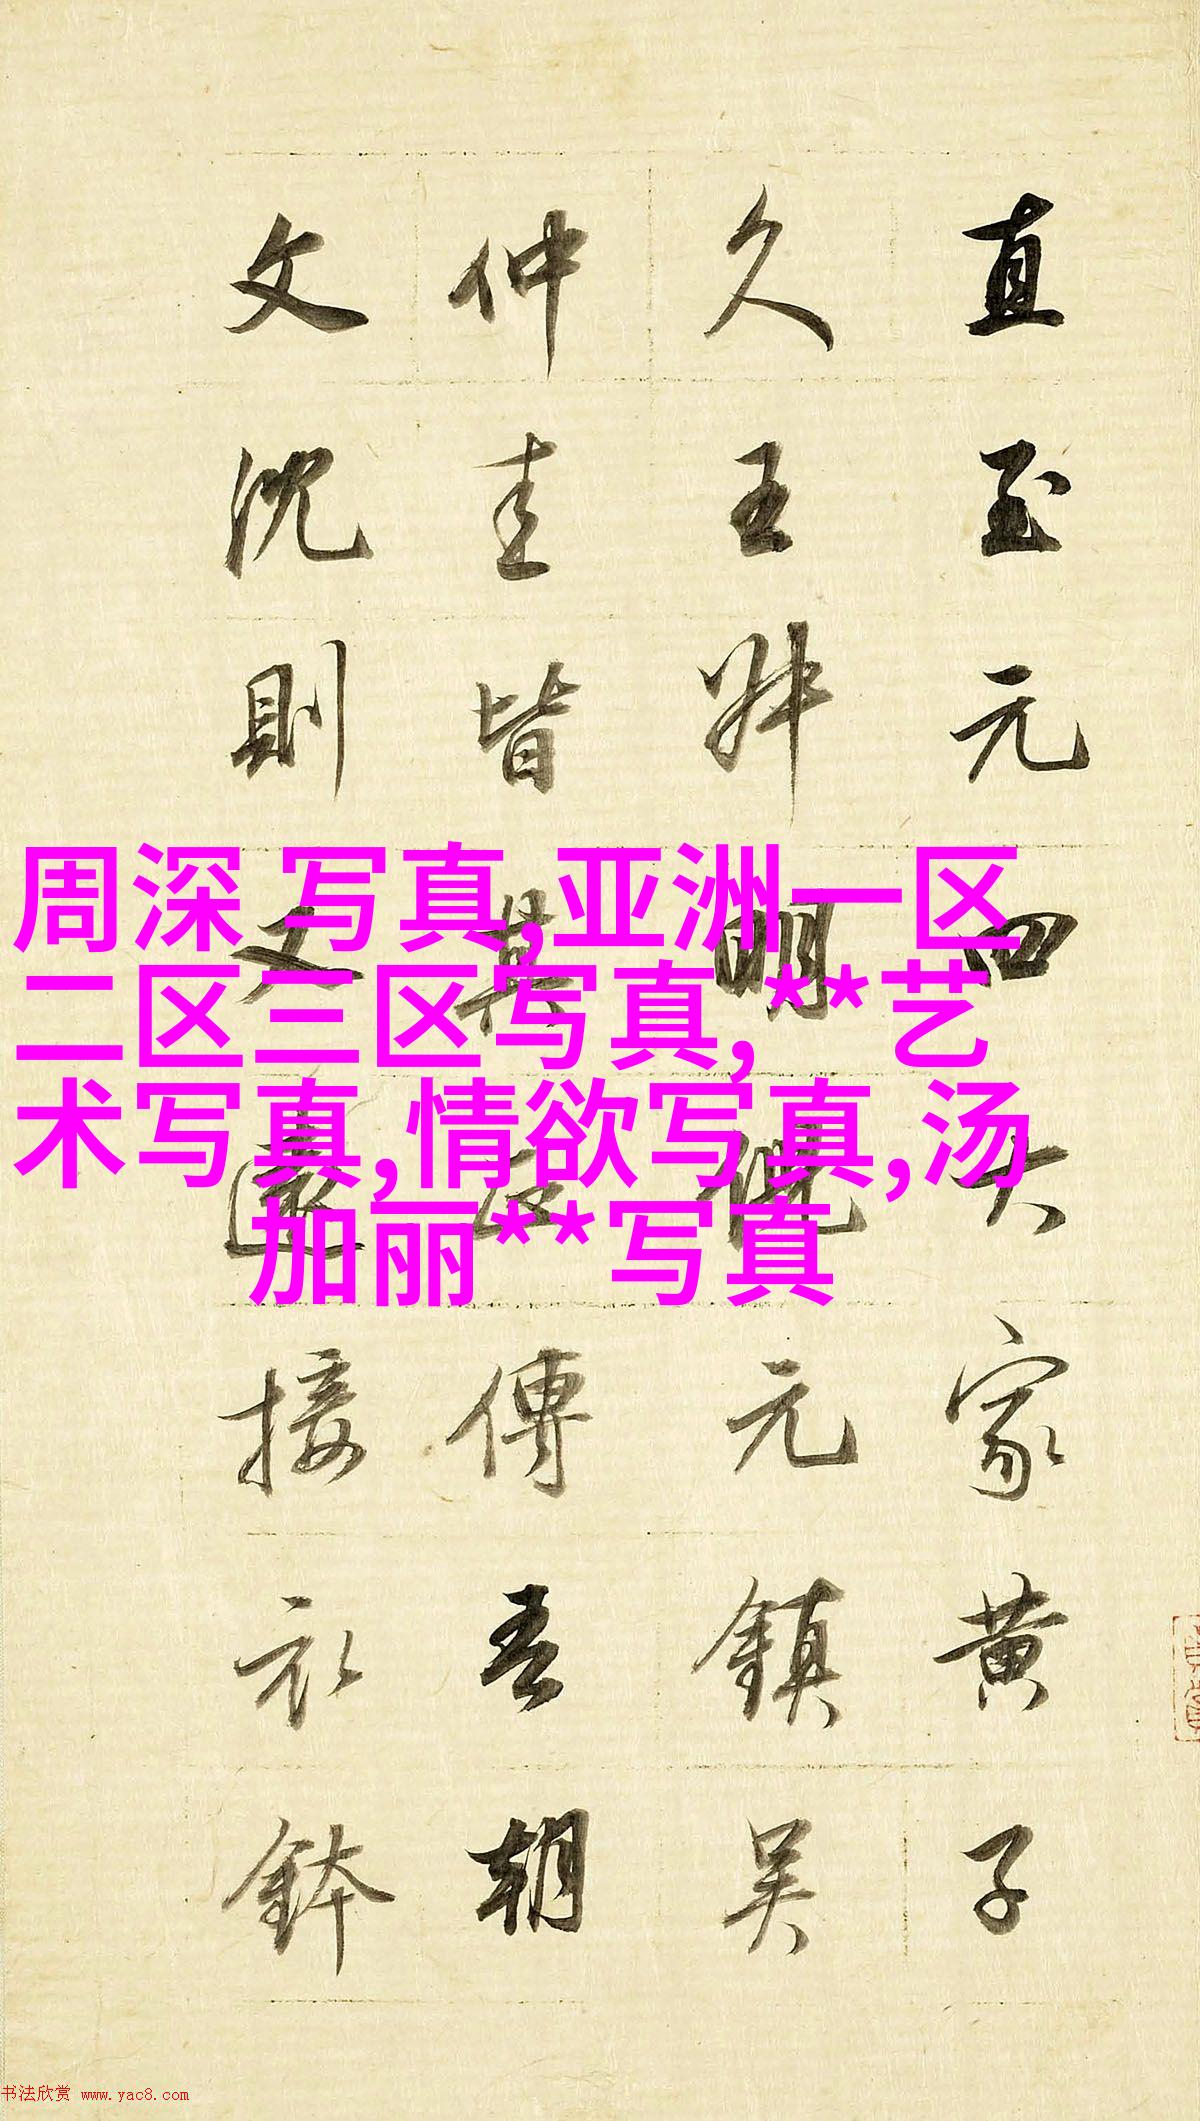 直至元四大家黃子
久王叔明倪元鎮吳
仲圭皆其正傳吾朝
文沈則又遠接衣鉢
周深 写真,亚洲一区
二区三区写真, **艺
术写真,情欲写真,汤
加丽**写真
书法欣赏 www.yac8.com